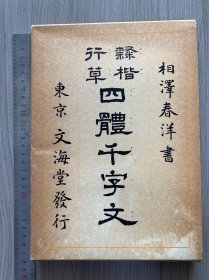 相澤春洋書
隸楷行草
四體千字文
東京 文海堂發行